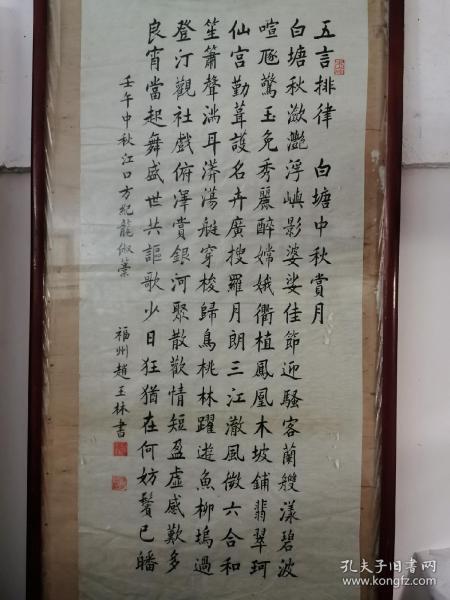 五言排律 白塘中秋賞月
白塘秋瀲灧浮嶼影婆娑佳節迎騷客蘭艘漾碧波
喧豗驚玉兔秀麗醉嫦娥衢植鳳凰木坡鋪翡翠珂
仙宮勤葺護名卉廣搜羅月朗三江澈風微六合和
笙簫聲滿耳漭蕩艇穿梭歸鳥桃林躍遊魚柳塢過
登汀觀社戲俯澤賞銀河聚散歡情短盈虛感歎多
良宵當起舞盛世共謳歌少日狂猶在何妨鬢已皤
壬午中秋江口方紀龍俶藁
福州趙玉林書
孔夫子旧书网